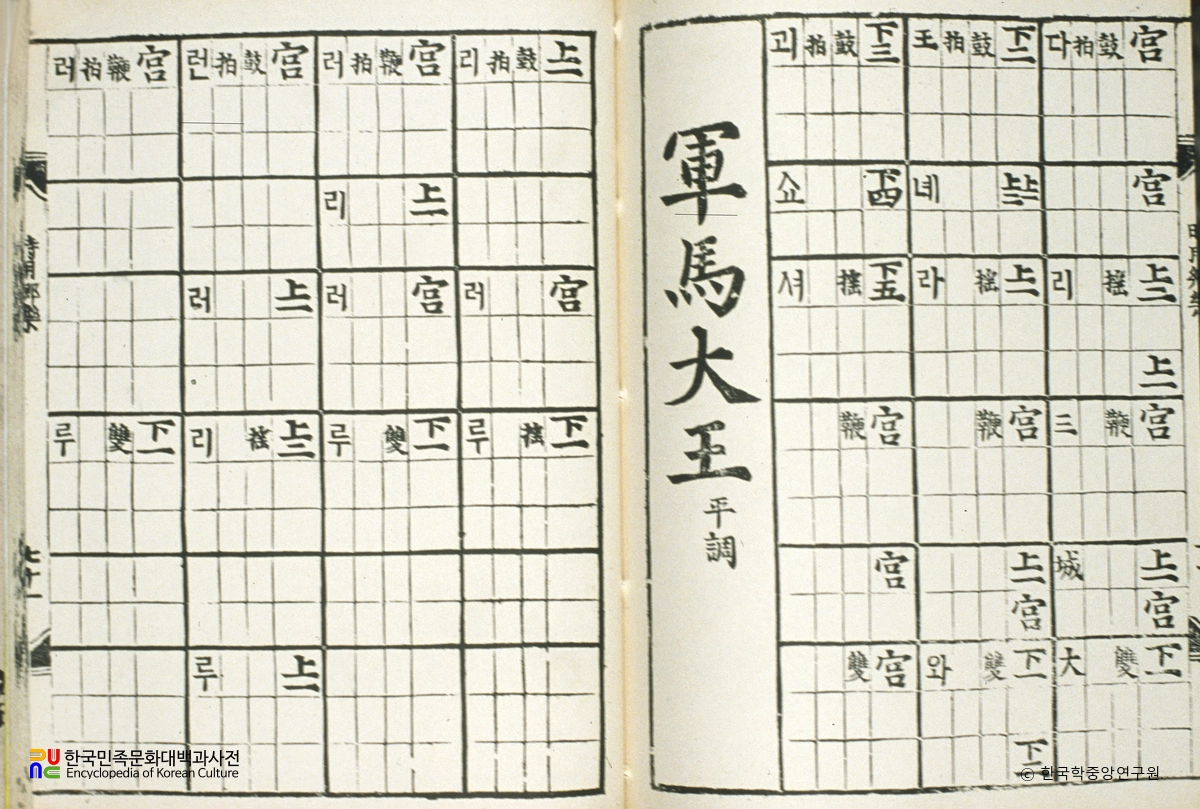 宮 宮 上二 上一 宮 上一 宮 下一
鼓 搖 鞭 雙
拍
다 리 三 城 大
下二 上一 宮 上一 宮 下一 下二
鼓 搖 鞭 雙
拍
王 녜 라 와
下三 下四 下五 宮 宮 宮
鼓 搖 鞭 雙
拍
괴 쇼 셔
軍馬大王 平調
上二 宮 下一
鼓 搖
拍
리 러 루
宮 上一 宮 下一
鞭 雙
拍
러 리 러 루
宮 上一 上二 上一
鼓 搖
拍
런 러 리 루
宮 下一
鞭 雙
拍
러 루
한국민족문화대백과사전
Encyclopedia of Korean Culture
© 한국학중앙연구원